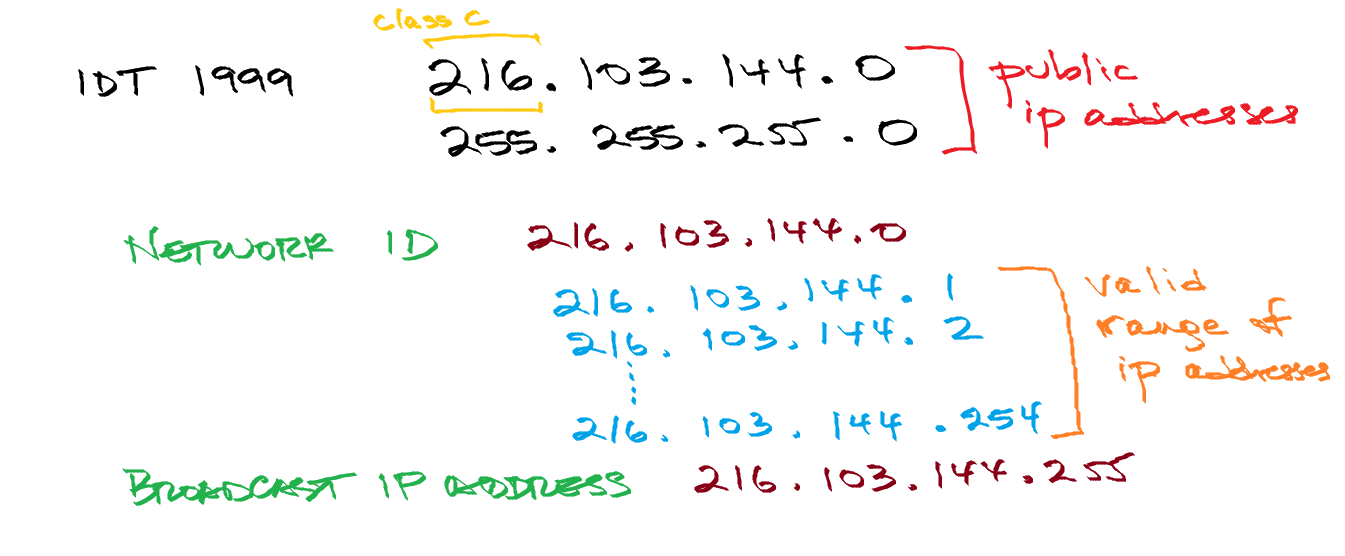 class c
IDT 1999 216.103.144.0
255.255.255.0
public
ip addresses
NETWORK ID 216.103.144.0
216.103.144.1
216.103.144.2
216.103.144.254
valid
range of
ip addresses
BROADCAST IP ADDRESS 216.103.144.255